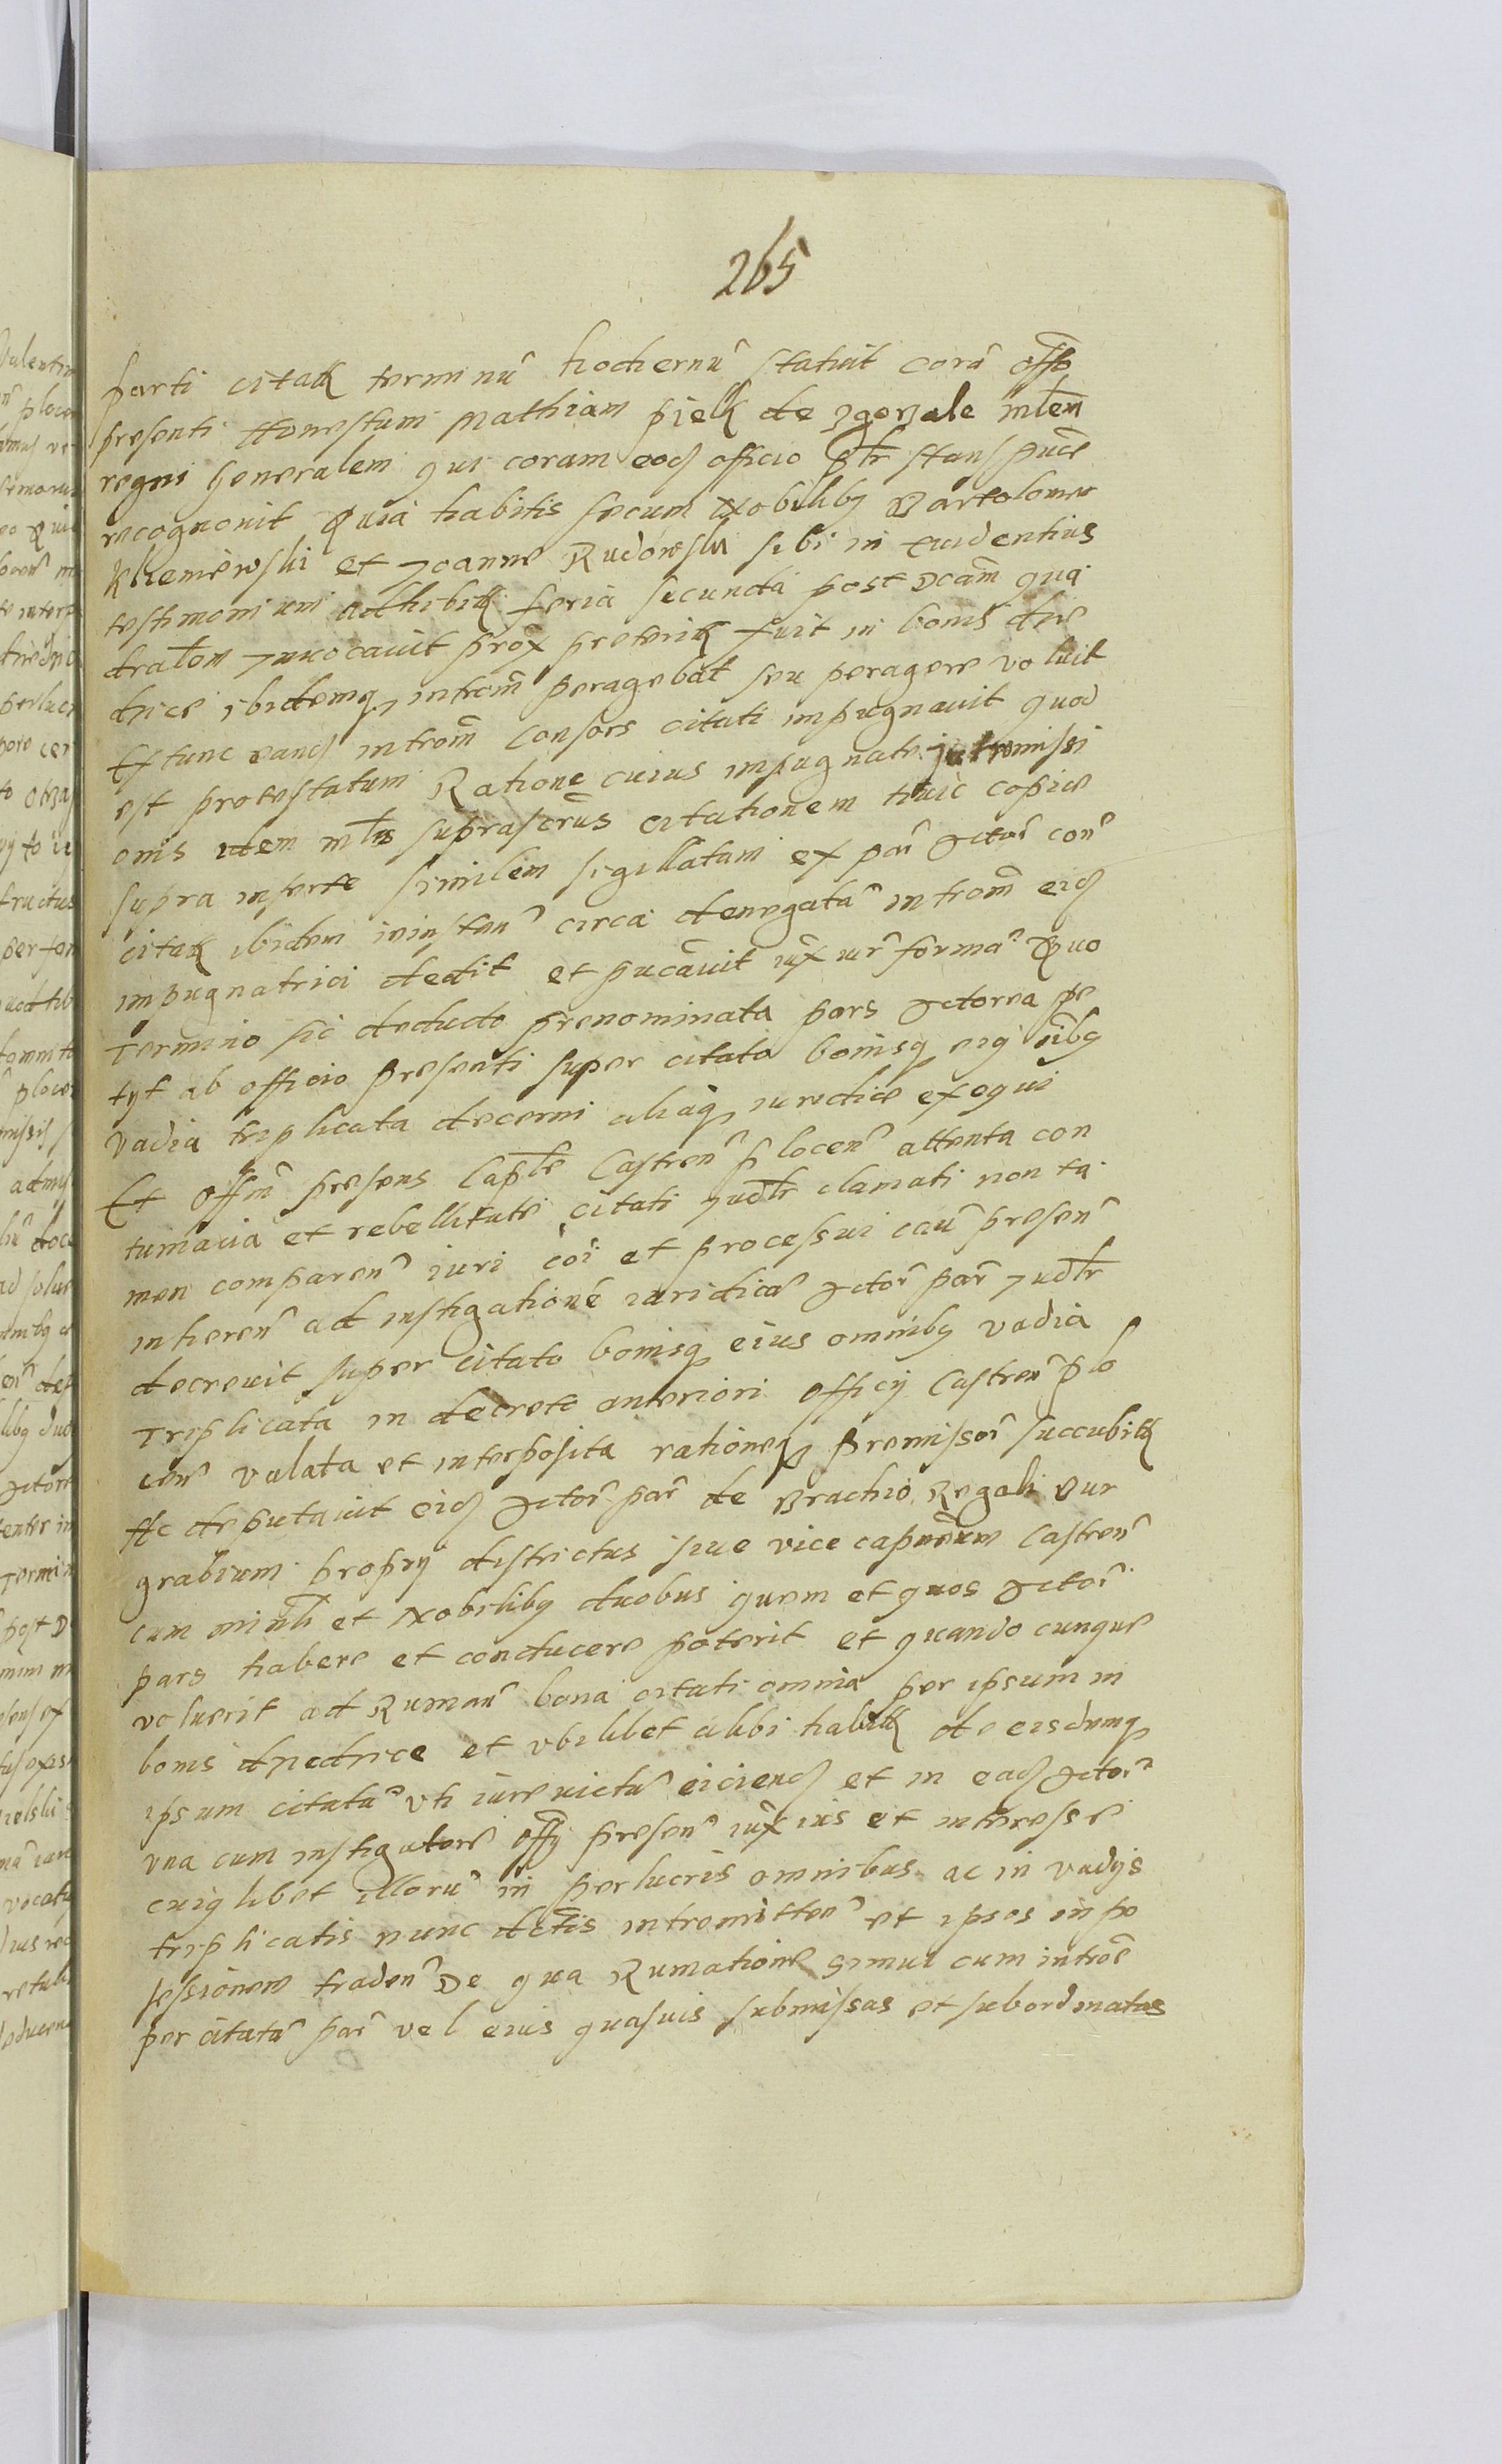 265
parti citatæ terminũ hodiernũ statuit corã offo
presenti Honestum Mathiam piek de zgorzale mlem
regni Generalem qui coram eod officio pstr stans pnce
recognouit Quia habitis secum Nobilibq Bartolomeo
Kliemewski et Joanne Rudowski sibi in euidentius
testimonium adhibitis feria secunda post Dcam qua
dralem Juuocauit prox preteritis fuit in bonis
ibidemq introm peragebat seu peragere voluit
Extunc eand introm consors citati impugnauit quod
est protestatum Ratione cuius impugnate jutromissi
onis idem mlis suprascrus citationem huic copie
supra inserte similem sigillatam ex par Actor con
citat ibidem ininstan circa denegatã introm eid
impugnatrici dedit et pucauit iux iur formã Quo
Termino sic deducto prenominata pars Actorea pe
tyt ab officio presenti super citato bonisq eiq oibq
vadia triplicata decerni aliaq iuredice exequi
Et Offm presens Caple Castren plocen attenta con
tumacia et rebellitate citati Judtr clamati non ta
men comparen iuri coi et processui cau presen
inheren ad instigationẽ iuridicã Actor par Judtr
decreuit super citato bonisq eius omnibq vadia
Triplicata in decreto anteriori officij Castren plo
cen valata et interposita rationeq premissor succubitis
Ac deputauit eid Actor par de Brachio Regali Bur
grabium proprij districtus siue vice capneum Castren
cum minli et Nobilibq duobus quem et quos Actor
pars habere et conducere poterit et quando cunque
voluerit ad Ruman bona citati omnia per ipsum in
bonis et vbilibet alibi habitis de eisdemq
ipsum citatũ vti iure victũ eiciend et in ead Actor
vna cum instigatore offij presen iux ius et interesse
cuiqlibet illorũ in perlucris omnibus ac in vadijs
triplicatis nunc detis intromitten et ipsos in po
sessionem traden De qua Rumatione simul cum introe
per citatã par vel eius quasuis submissas et subordinatas